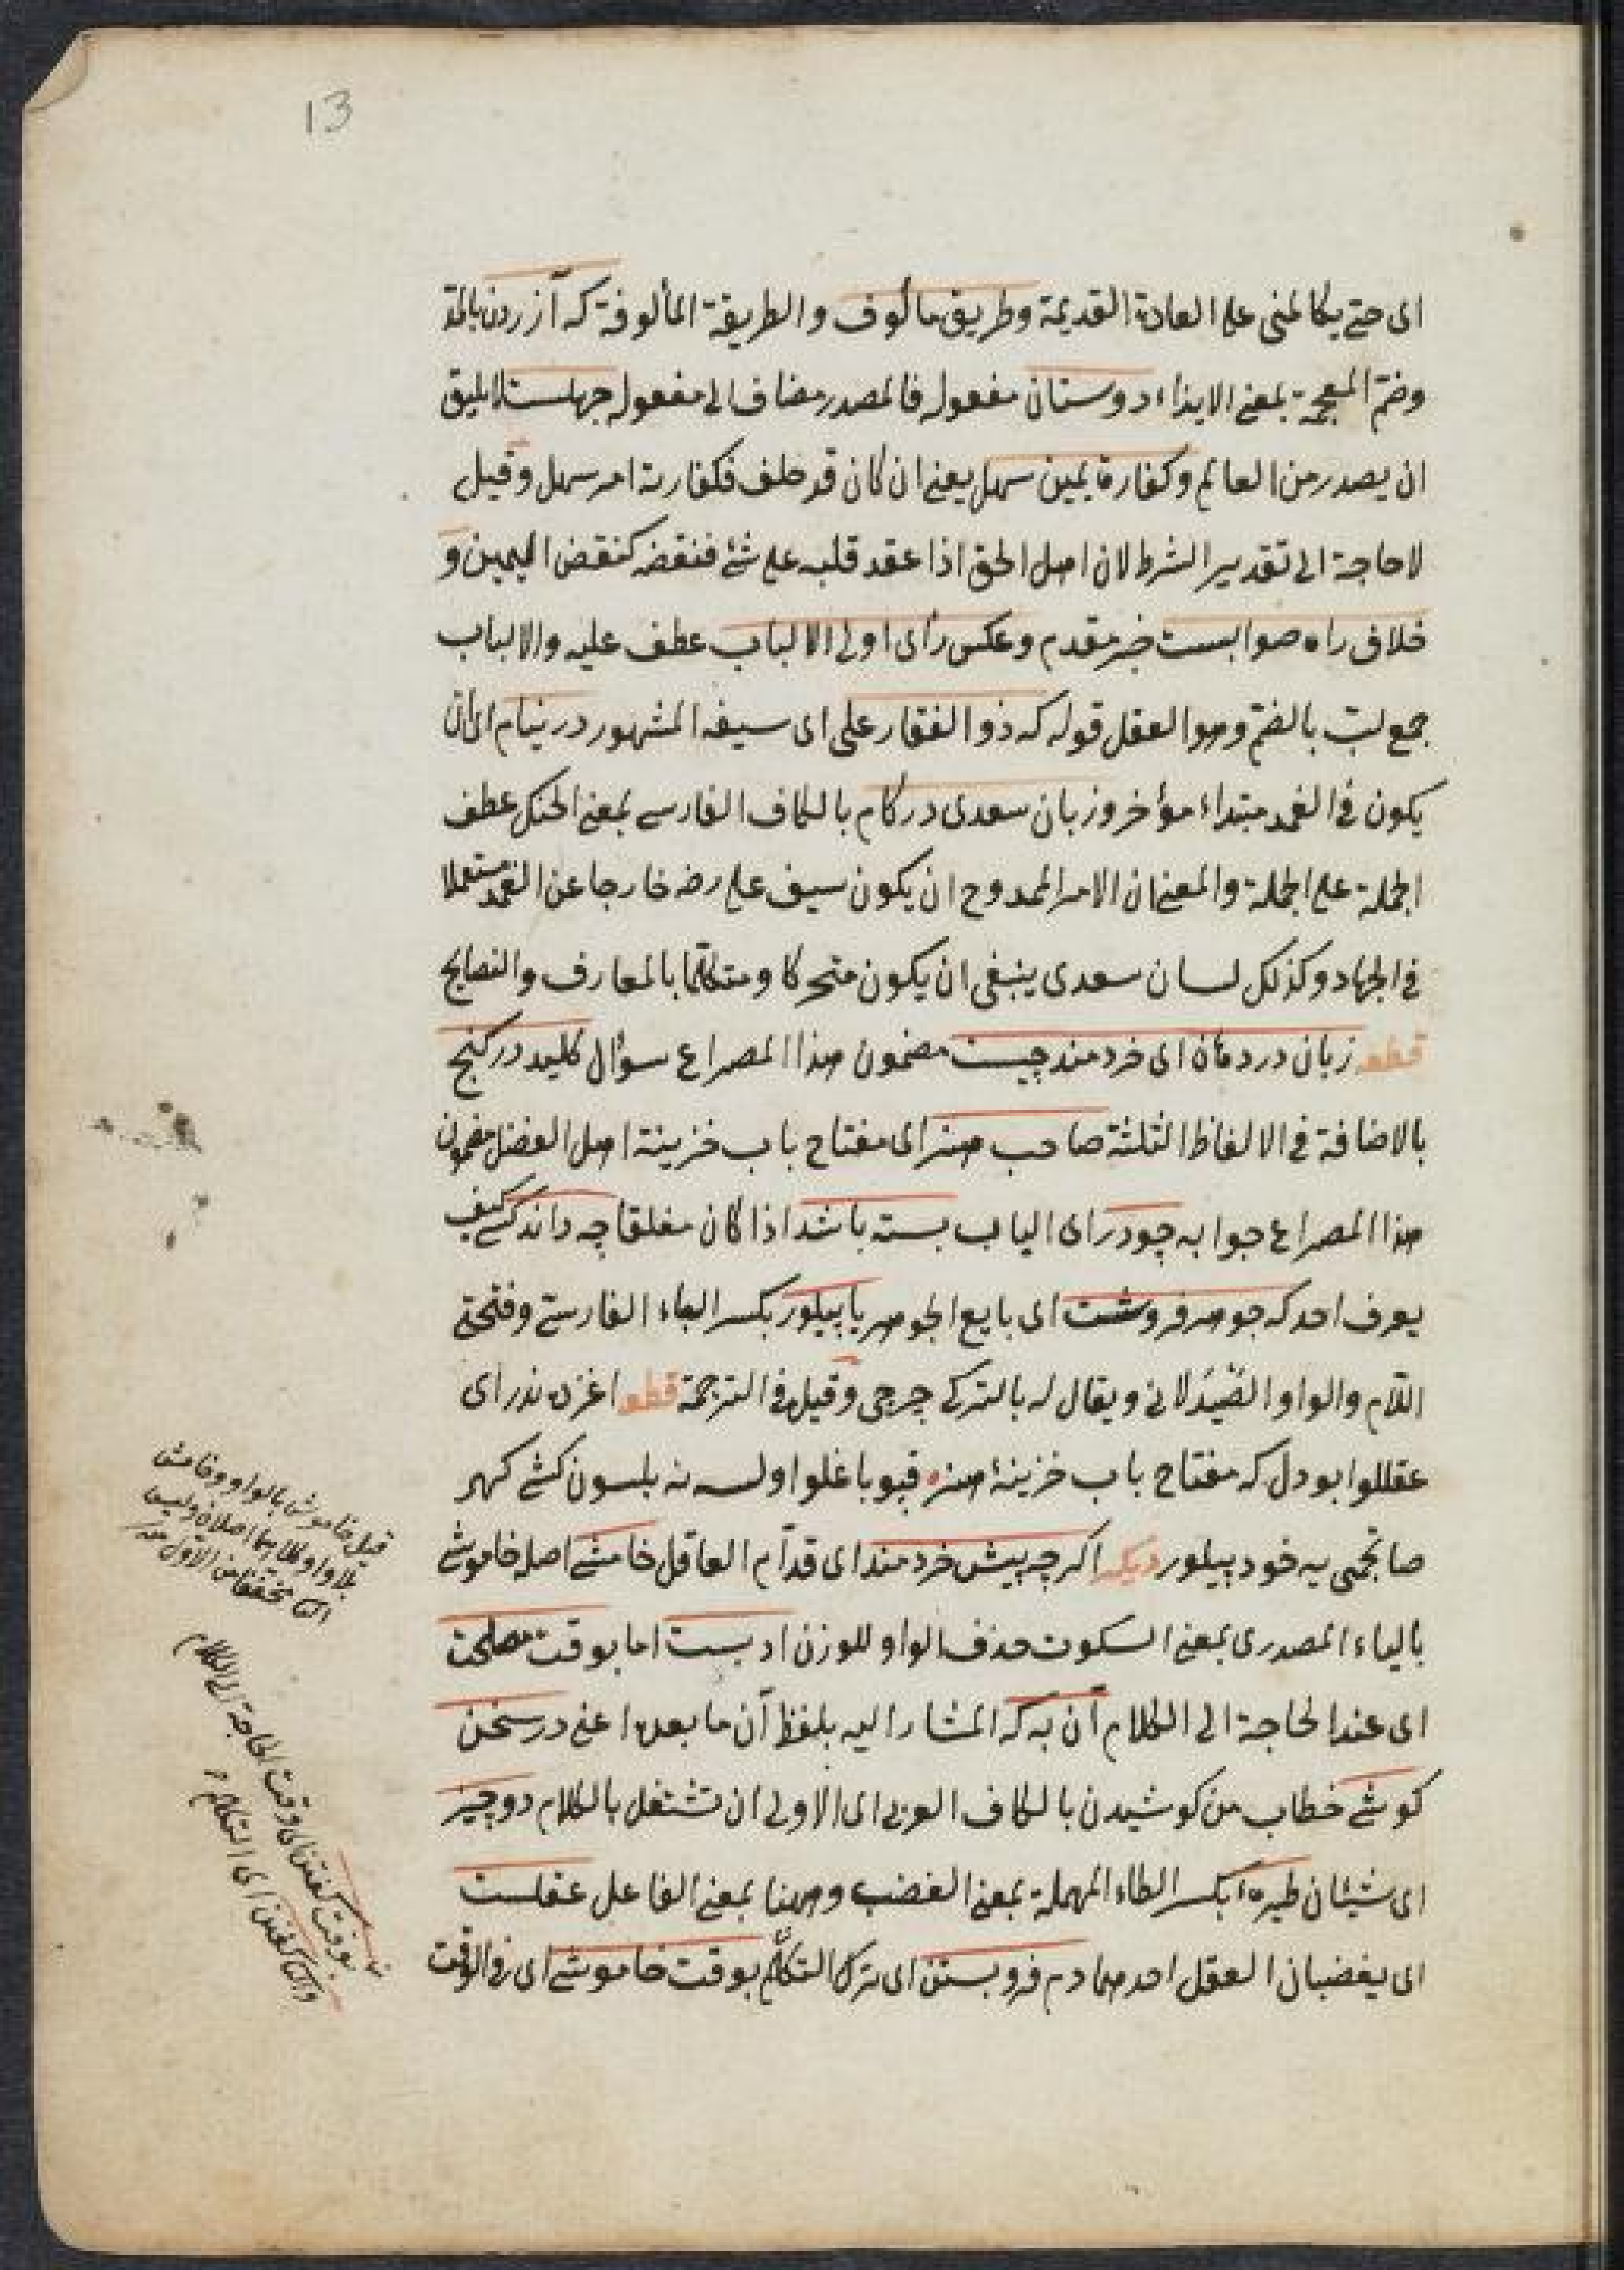 13
اى حتى يكالمنى على العادة القديمة وطريق مألوف و الطريقة المألوفة كه آزردن بالمد
وضم المعجمة بمعنى الايذاء دوستان مفعوله فالمصدر مضاف الى مفعوله جهلست لا يليق
ان يصدر من العالم وكفارة يمين سهل يعنى ان كان قد حلف فكفارته امر سهل وقيل
لا حاجة الى تقدير الشرط لان اهل الحق اذا عقد قلبه على شئ فنقضه كنقض اليمين و
خلاف راه صوابست خبر مقدم وعكس رأى اولى الالباب عطف عليه والالباب
جمع لبّ بالضم وهو العقل قوله كه ذو الفقار على اى سيفه المشهور در نيام اى ان
يكون فى الغمد مبتداء مؤخر وزبان سعدى در كام بالكاف الفارسى بمعنى الحنك عطف
الجملة على الجملة والمعنى ان الامر الممدوح ان يكون سيف على رضه خارجا عن الغمد مستعملا
فى الجهاد وكذلك لسان سعدى ينبغى ان يكون متحركا ومتكلما بالمعارف والنصايح
قطعه زبان در دهان اى خردمند چيست مضمون هذا المصراع سؤال كليد در كنج
بالاضافة فى الالفاظ الثلثة صاحب هنر اى مفتاح باب خزينة اهل الفضل مضمون
هذا المصراع جوابه چو در اى الباب بسته باشد اذا كان مغلقا چه داند كسى كيف
يعرف احد كه جوهر فروشست اى بايع الجوهر يا پيلور بكسر الباء الفارسى وفتحتى
اللام والواو الصَّيْدَلانى ويقال له بالتركى چرچى وقيل فى الترجمة قطعه اغزده ندر اى
عقللو ابو دل كه مفتاح باب خزينۀ هنر قپو باغلو اولسه نه بلسون كشى كهر
صاتجمى يه خود پيلور ديگر اگر چه پيش خردمند اى قدّام العاقل خامشى اصله خاموشى
بالياء المصدرى بمعنى السكوت حذف الواو للوزن ادبست اما بوقت مصلحت
اى عند الحاجة الى الكلام آن به كه المشار اليه بلفظ آن ما بعده اعنى در سخن
كوشى خطاب من كوشيدن بالكاف العربى اى الاولى ان تشتغل بالكلام دو چيز
اى شيئان طيرهٔ بكسر الطاء المهملة بمعنى الغضب وههنا بمعنى الفاعل عقلست
اى يغضبان العقل احدهما دم فرو بستن اى ترك التكلّم بوقت خاموشى اى فى الوقت
قيل خاموش بالواو وخامش
بلا واو كلاهما اصلان وليس
الثانى مخففا من الاول منه
بوقت كفتن اى وقت الحاجة الى الكلام
والثانى كفتن اى التكلم